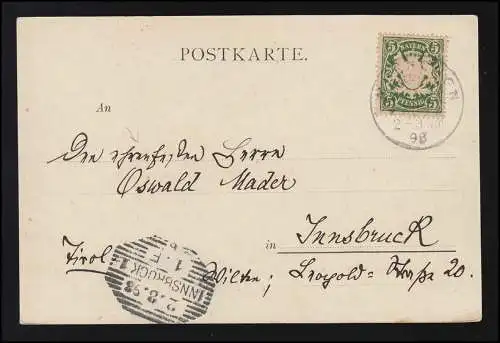 POSTKARTE.
5 BAYERN 5
5 PFENNIG 5
98
An
Den ehrenfesten Herrn
Oswald Mader
in Innsbruck
Tirol
Wilten; Leopold=Straße 20.
INNSBRUCK 1
2.8.98
1.F